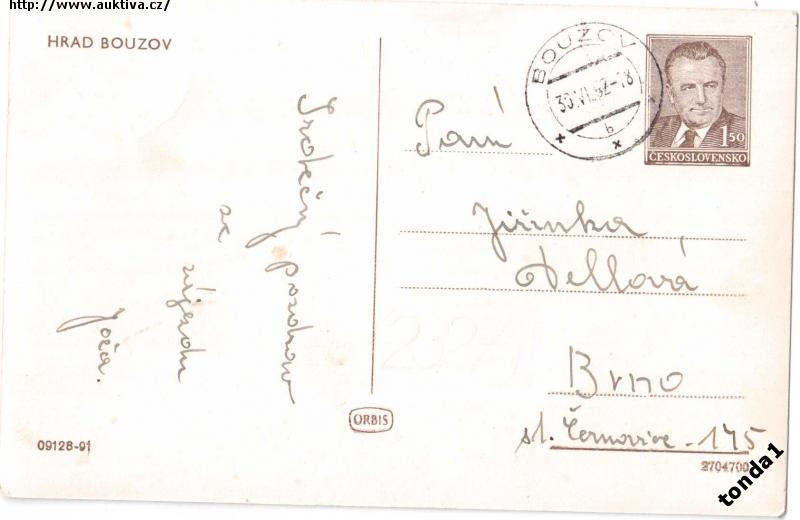 http://www.auktiva.cz/
HRAD BOUZOV
Srdečný pozdrav
ze
zájezdu
Joža.
09128-91
ORBIS
BOUZOV
30.VI.52-18
b
1 50
ČESKOSLOVENSKO
Paní
Jiřinka
Dellová
Brno
sl. Černovice - 175
2704700
tonda1